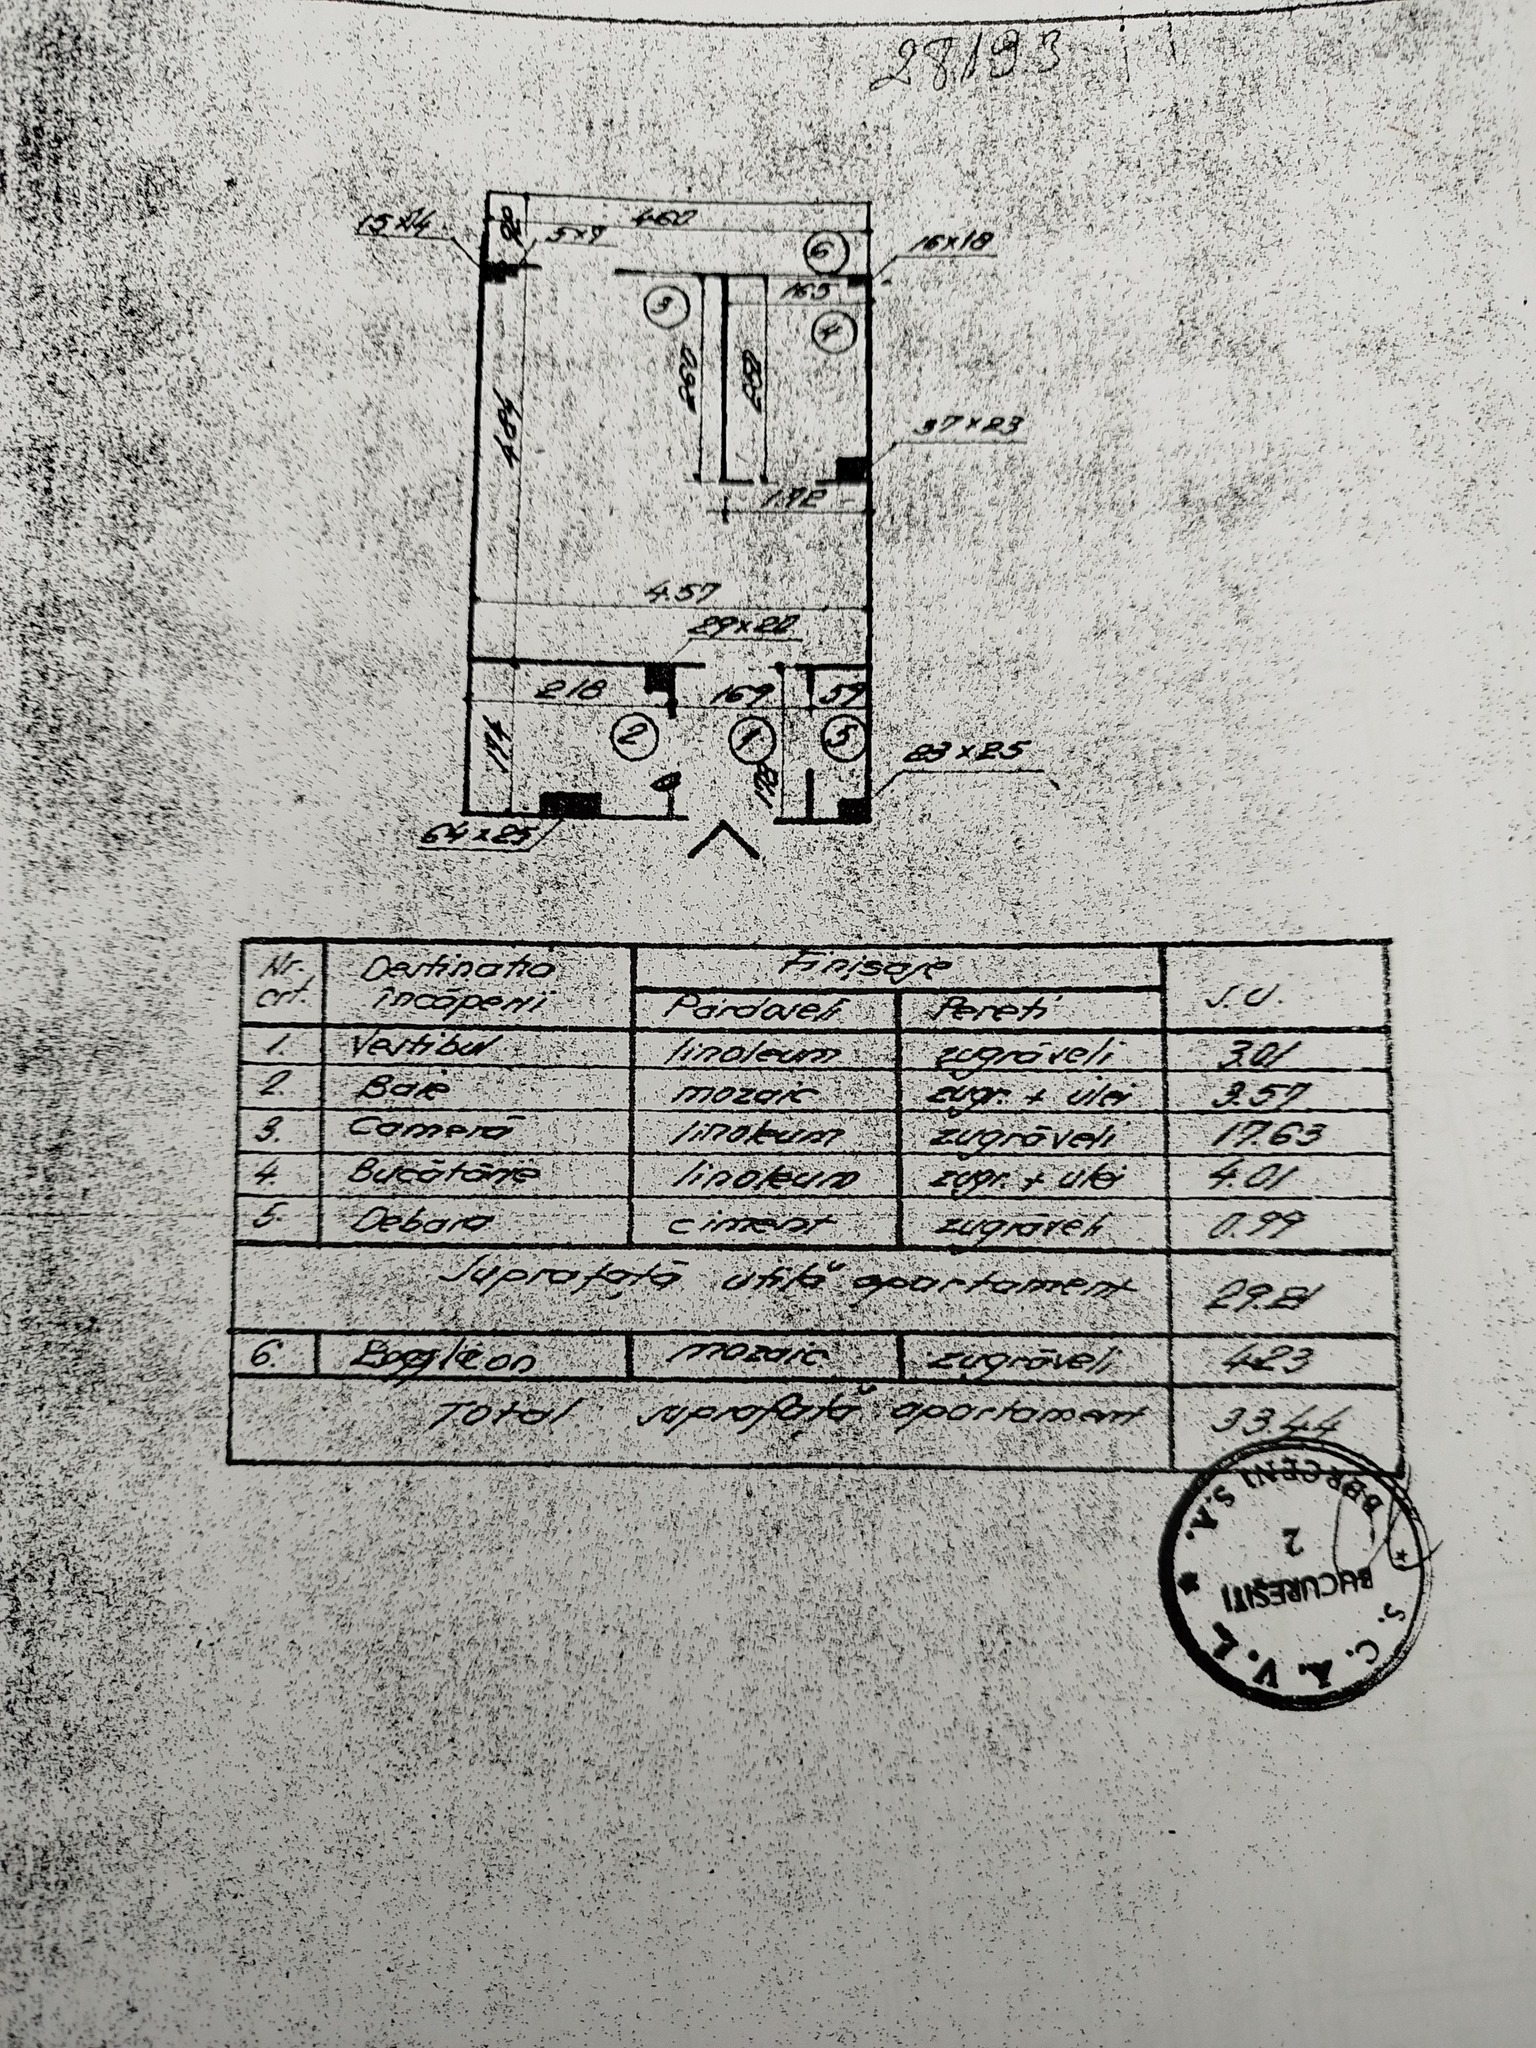 28193
15x24
5x9
460
6
16x18
3
165
4
2.50
484
37x23
1.72
4.57
29x22
218
169
59
2
1
5
174
178
23x25
64x25
Nr. crt.
Destinatia încăperii
Finisaje
S.U.
Pardoseli
Pereti
1. Vestibul linoleum zugrăveli 3.01
2. Baie mozaic zugr. + ulei 3.57
3. Cameră linoleum zugrăveli 17.63
4. Bucătărie linoleum zugr. + ulei 4.01
5. Debara ciment zugrăveli 0.99
Suprafață utilă apartament 29.21
6. mozaic zugrăveli 4.23
Total suprafață apartament 33.44
S.C.A.V.L. * BERCENI S.A. *
BUCUREȘTI
2